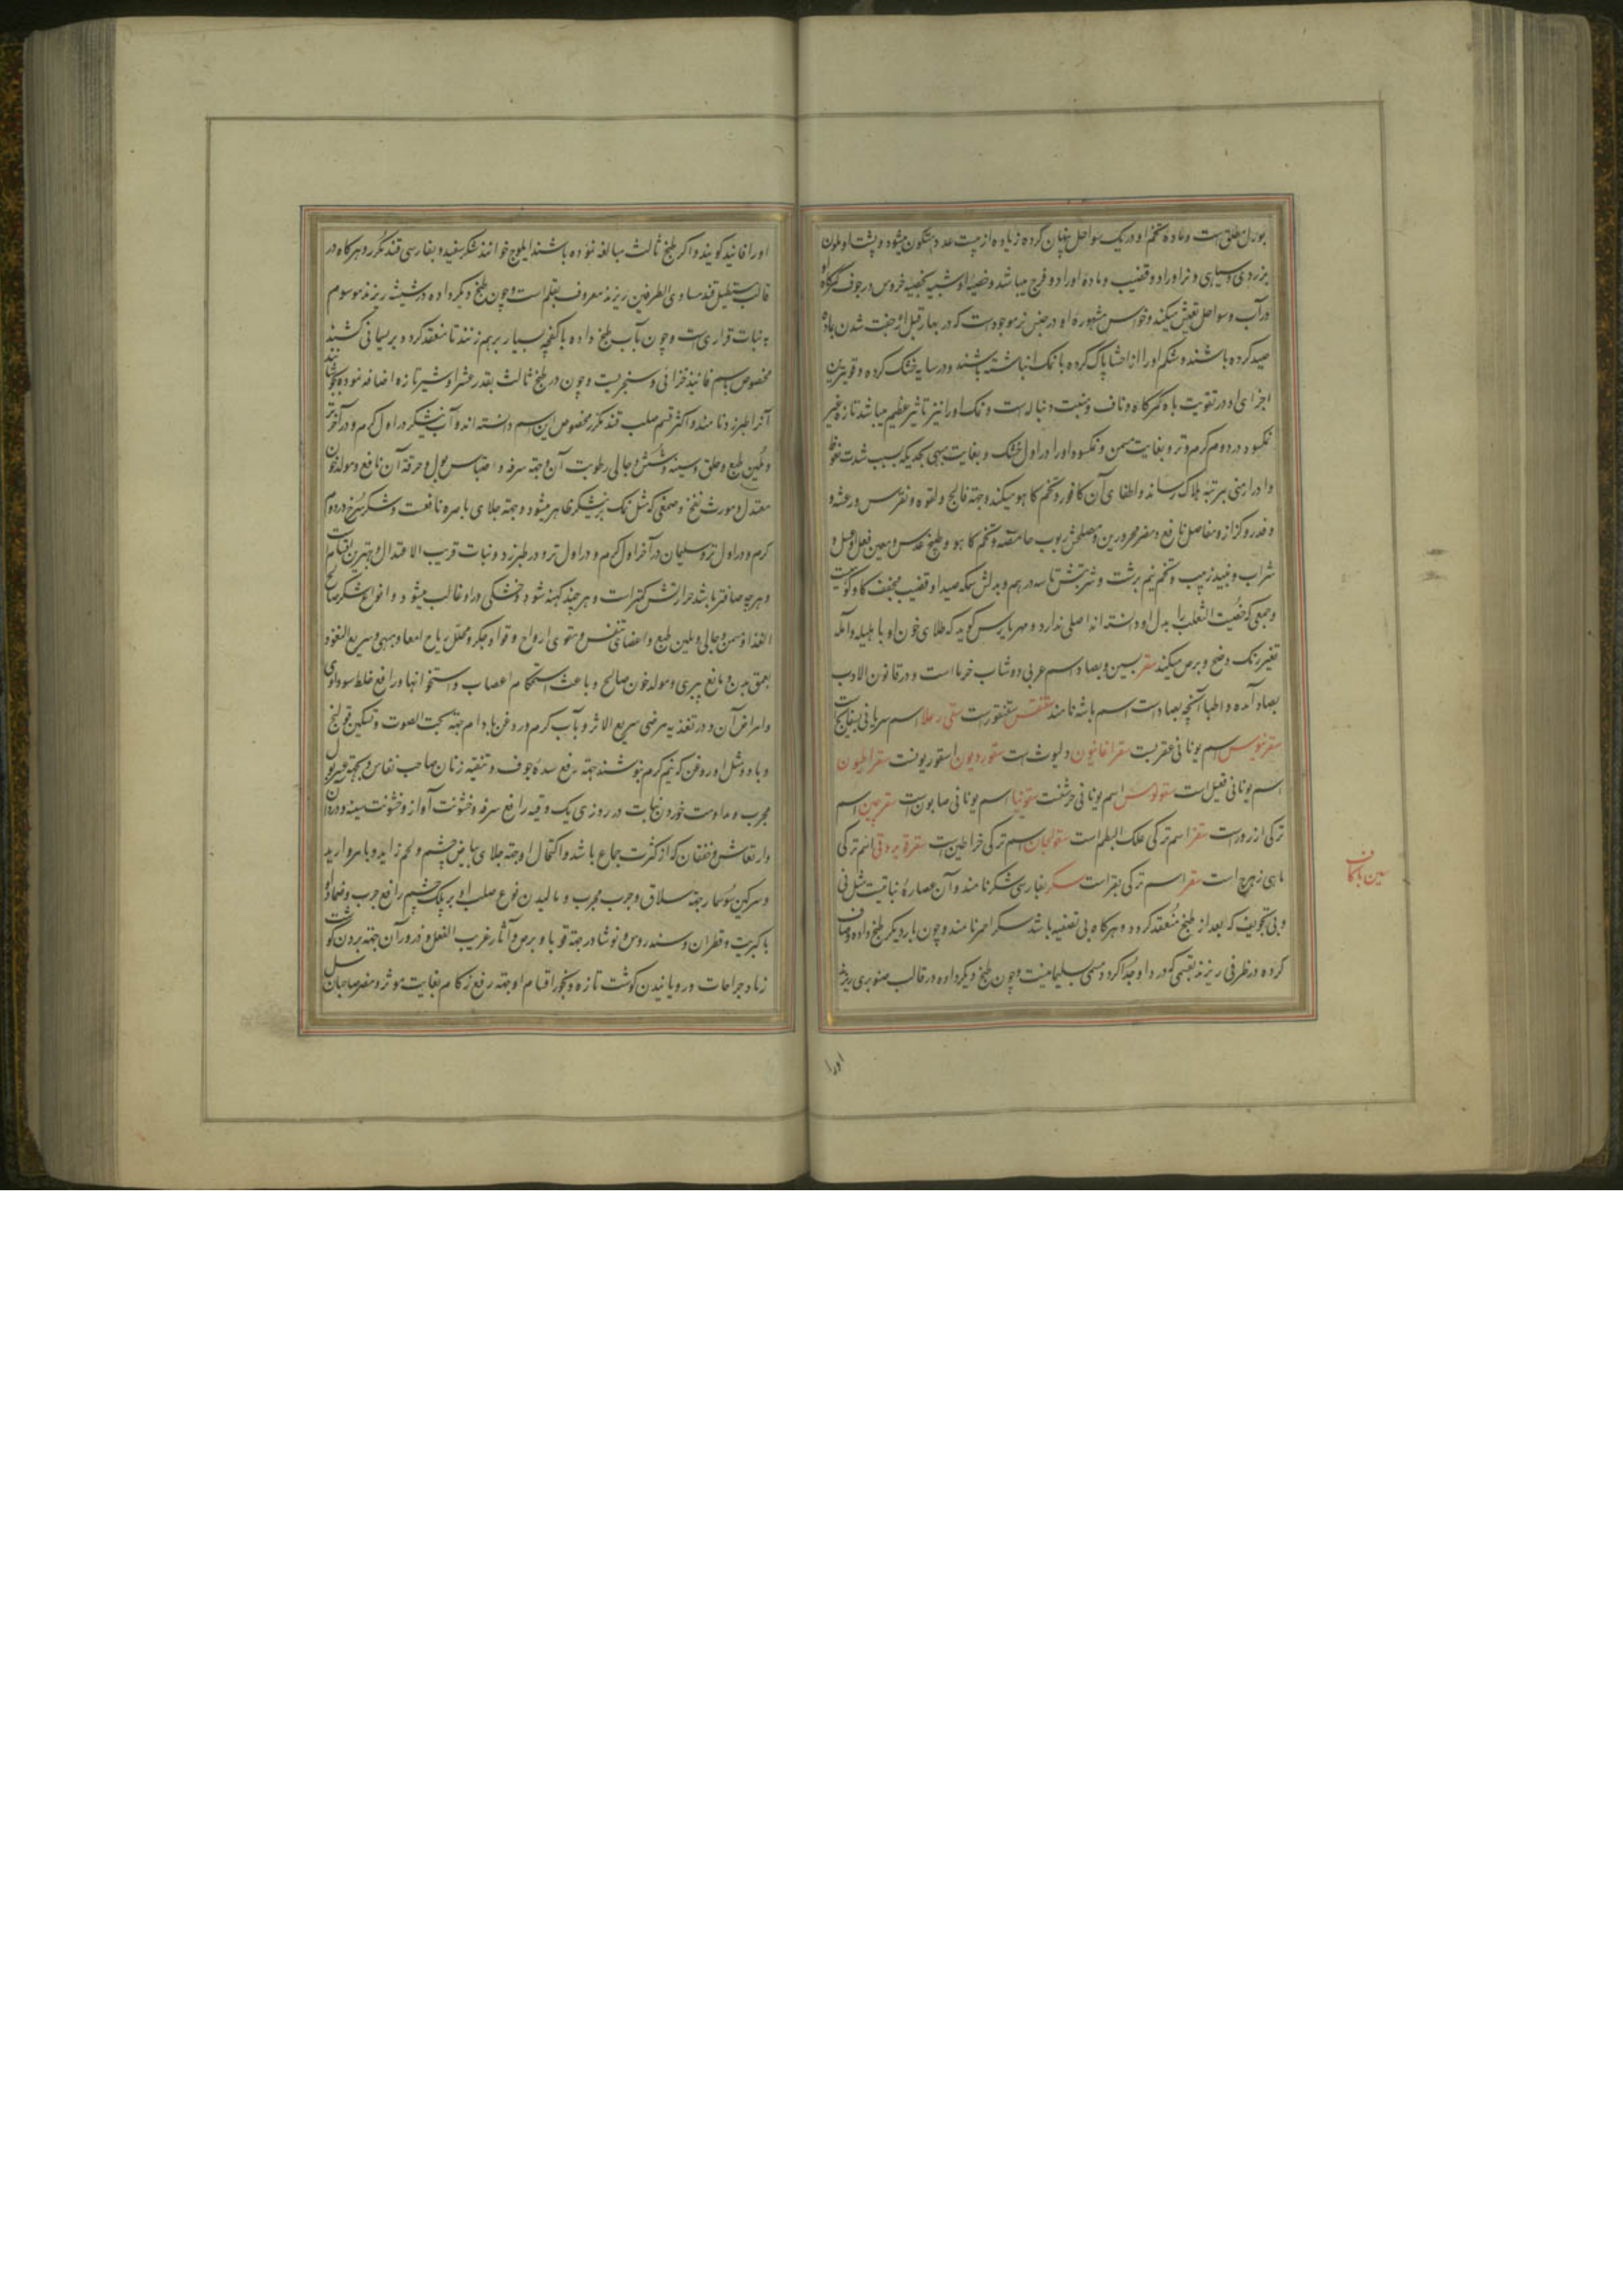 بورل مطلق است و ماده تخم او در ریک سواحل پنهان کرده زیاده از بیست عدد متکون میشود و پشت او ملون
بزردی و سیاهی و نر او را دو قضیب و ماده او را دو فرج میباشد و خصیهٔ او شبیه بخصیه خروس در جوف تهیکاه او
در آب و سواحل تعیش میکند و خواص مشهوره او در جنس نر موجود است که در بهار قبل از جفت شدن با ماده
صید کرده باشند و شکم او را از احشا پاک کرده با نمک انباشته باشند و در سایه خشک کرده و قویترین
اجزای او در تقویت باه کمرکاه و ناف و منبت دنباله است و نمک او را نیز تاثیر عظیم میباشد تازه غیر
نمکسود در دوم کرم و تر و بغایت مسمن و نمکسود او را در اول خشک و بغایت مبهی بحدیکه بسبب شدت نعوظ
و ادرار منی بمرتبه هلاک رساند و اطفای آن کافور و تخم کاهو میکند و جهة فالج و لقوه و نقرس و رعشه و
و خدر و کزاز و مفاصل نافع و مضر محرورین و مصلحش ربوب حامضه و تخم کاهو و طبیخ عدس و معین فعل او عسل و
شراب و نبیذ زبیب و تخم نیم برشت و شربتش تا سه درهم و بدلش سمکه صیدا و قضیب مجفف کاو کوهیست
و جمعی که خصیت الثعلب را بدل او دانسته اند اصلی ندارد و مهریارس کوید که طلای خون او با هلیله و آمله
تغییر رنک وضح و برص میکند سقر بسین و بصاد اسم عربی دوشاب خرما است و در قانون الادب
بصاد آمده و اطبا آنچه بصاد است اسم باشه نامند سقنقس سقنقور است سقی رعلا اسم سریانی بسفایج است
سقرنیوس اسم یونانی عقربست سقراغانیون دلبوث است سقوردیون اسقوریونست سقراطیون
اسم یونانی فقیل است سقولوس اسم یونانی حرشفست سقونیا اسم یونانی صابونست سقرجین اسم
ترکی ازرورست سقز اسم ترکی علک البطم است سقولجان اسم ترکی خراطین است سقرة بروقی اسم ترکی
ماهی زهرج است سقر اسم ترکی بقر است سکر بفارسی شکر نامند و آن عصارهٔ نباتیست مثل نی
و بی تجویف که بعد از طبخ منعقد کردد و هرکاه بی تصفیه باشد سکر احمر نامند و چون بار دیکر طبخ داده و صاف
کرده در ظرفی ریزند بقسمی که دردِ او جدا کردد مسمی بسلیمانیست و چون طبخ دیکر داده در قالب صنوبری ریزند
سین با کاف
اورا
اورا فانید کویند و اکر طبخ ثالث مبالغه نموده باشند ایلوج خوانند شکر سفید و بفارسی قند مکرر و هرکاه در
قالب مستطیل قند مساوی الطرفین ریزند معروف بقلم است و چون طبخ دیکر داده در شیشه ریزند موسوم
به نبات قراریست و چون بآب طبخ داده با کفچه بسیار برهم زنند تا منعقد کردد بریسمانی کشند
مخصوص باسم فانید خزائی و سنجریست و چون در طبخ ثالث بقدر عشر او شیر تازه اضافه نموده بجوشانند
آنرا طبرزد نامند و اکثر قسم صلب قند مکرر مخصوص این اسم دانسته اند و آب نیشکر در اول کرم و در آخر تر
و ملین طبع و حلق و سینه و شش و جالی رطوبت آن و جهة سرفه و احتباس بول و حرقهٔ آن نافع و مولد خون
معتدل و مورث نفخ و صمغی که مثل نمک بر نیشکر ظاهر میشود و جهة جلای باصره نافعست و شکر سرخ در دوم
کرم و در اول تر و سلیمانی در آخر اول کرم و در اول تر و در طبرزد و نبات قریب الاعتدال و بهترین اقسام است
و هرچه صافتر باشد حرارتش کمتر است و هر چند کهنه شود خشکی در او غالب میشود و انواع شکر صالح
الغذا و مسمن و جالی و ملین طبع و اعضای تنفس و مقوی ارواح و قوا و جکر و محلل ریاح امعا و مبهی و سریع النفوذ
بعمق بدن و مانع پیری و مولد خون صالح و باعث استحکام اعصاب و استخوانها و رافع خلط سوداوی
و امراض آن و در تغذیه مرضی سریع الاثر و بآب کرم و روغن بادام جهة بحت الصوت و تسکین قولنج
و با دو مثل او روغن که نیم کرم بنوشند جهة رفع سده جوف و تنقیه زنان صاحب نفاس و بجهة عسر بول
مجرب و مداومت خوردن نبات در روزی یک وقیه رافع سرفه و خشونت آواز و خشونت سینه و درد آن
و ارتعاش و خفقان که از کثرت جماع باشد و اکتحال او جهة جلای بیاض چشم و لحم زاید و با مروارید
و سرکین سوسمار جهة سلاق و جرب مجرب و مالیدن نوع صلب او بر پلک چشم رافع جرب و ضماد او
با کبریت و قطران و سندروس و نوشادر جهة قوبا و برص و آثار غریب الفعل و ذرور آن جهة بردن کوشت
زیاد جراحات و رویانیدن کوشت تازه و بخور اقسام او جهة رفع زکام بغایت موثر و مضر صاحبان سل